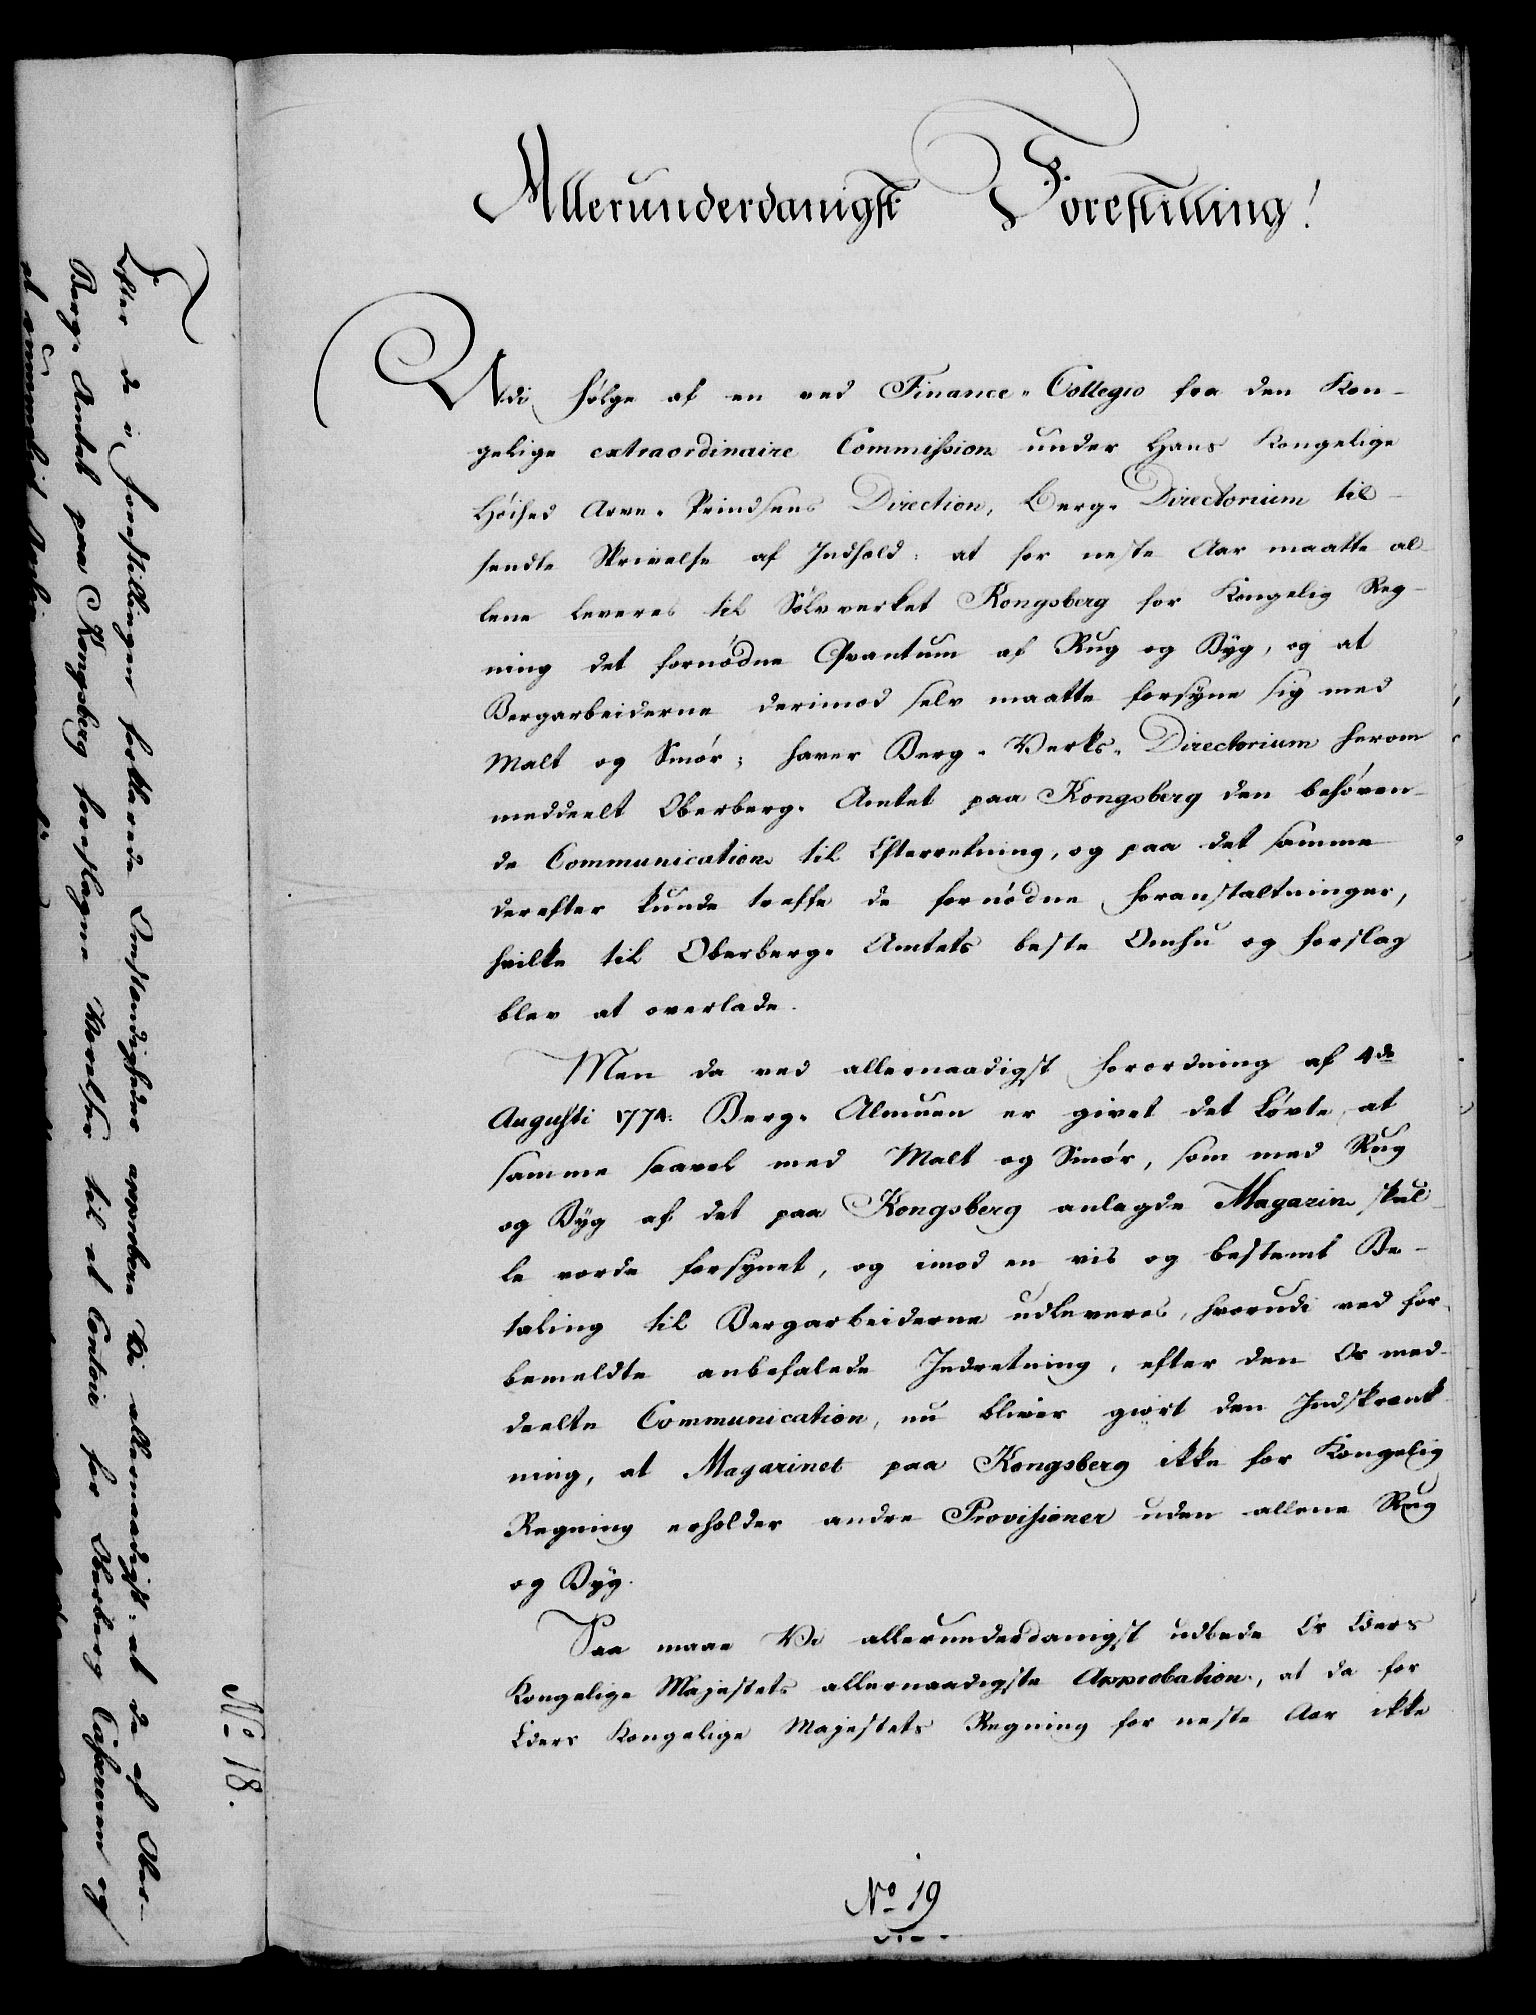 Allerunderdanigst Forestilling!
Udi følge af en ved Finance-Collegio fra den Kon-
gelige extraordinaire Commission under Hans Kongelige
Høihed Arve-Prindsens Direction, Berg-Directorium til-
sendte Skrivelse af Indhold: at for neste Aar maatte al-
lene leveres til Sølvverket Kongsberg for Kongelig Reg-
ning det fornødne Qvantum af Rug og Byg, og at
Bergarbeiderne derimod selv maatte forsyne sig med
Malt og Smør; haver Berg-Verks-Directorium herom
meddeelt Oberberg-Amtet paa Kongsberg den behøven-
de Communication til Efterretning, og paa det samme
derefter kunde treffe de fornødne Foranstaltninger,
hvilke til Oberberg-Amtets beste Omhu og forslag
blev at overlade.
Men da ved allernaadigst Forordning af 4de
Augusti 1774. Berg-Almuen er givet det Løvte, at
samme saavel med Malt og Smør, som med Rug
og Byg af det paa Kongsberg anlagde Magazin skul-
le vorde forsynet, og imod en vis og bestemt Be-
taling til Bergarbeiderne udleveres, hvorudi ved for-
bemeldte anbefalede Indretning, efter den Os med-
deelte Communication, nu bliver giort den Indskrenk-
ning, at Magazinet paa Kongsberg ikke for Kongelig
Regning erholder andre Provisioner uden allene Rug
og Byg.
Saa maae Vi allerunderdanigst udbede Os Eders
Kongelige Majestets allernaadigste Approbation, at da for
Eders Kongelige Majestets Regning for neste Aar ikke
No 19
No 18.
Efter de i Forestillingen forklarede Omstændigheder approbere Vi allernaadigst: at de af Ober-
Berg-Amtet paa Kongsberg foreslagne Værelser til et Contoir for Oberberg Casserern og